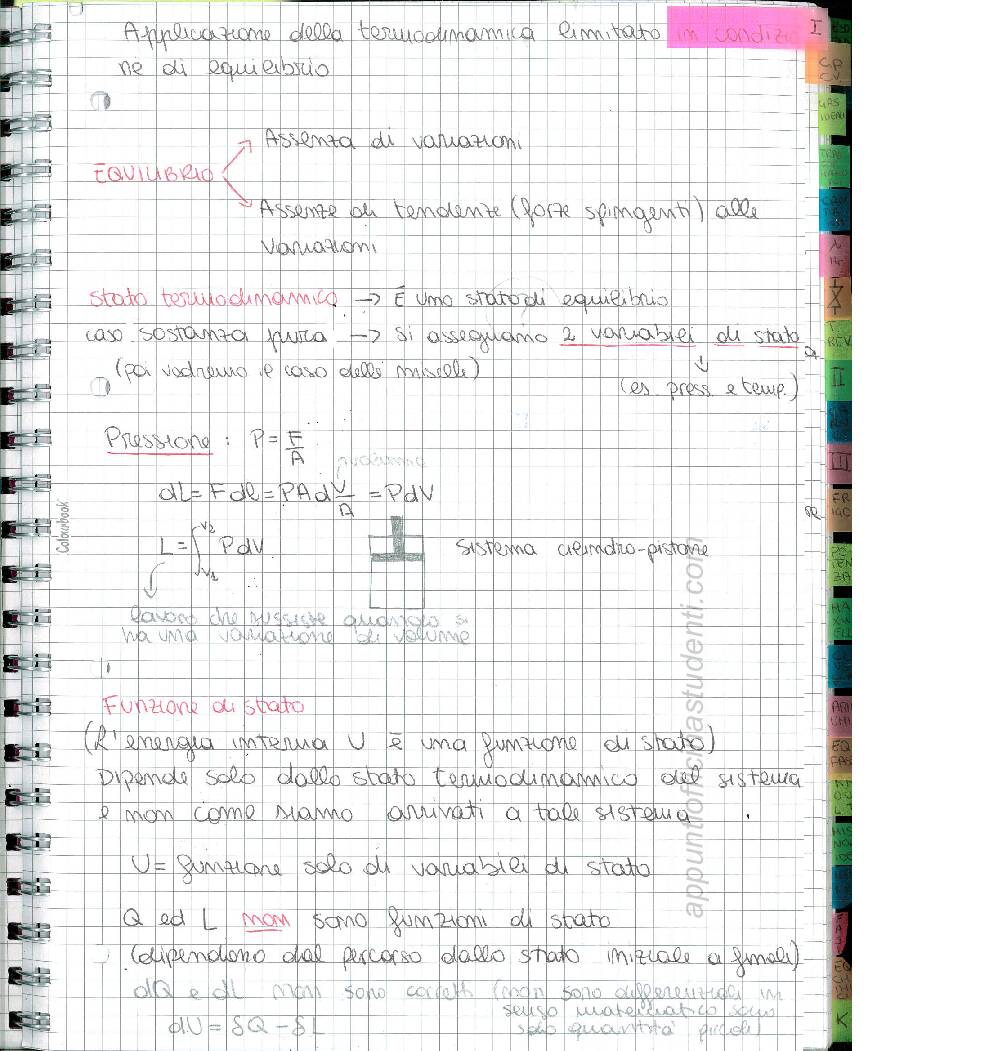 Applicazione della termodinamica limitato in condizio
ne di equilibrio
Assenza di variazioni
EQUILIBRIO
Assenze di tendenze (forze spingenti) alle
variazioni
Stato termodinamico → È uno stato di equilibrio
caso sostanza pura → Si assegnano 2 variabili di stato
(poi vedremo il caso delle miscele)
(es. press. e temp.)
Pressione : P = F/A
dL = Fdl = PAd V/A = PdV
L = ∫ V1 V2 PdV
Sistema cilindro-pistone
lavoro che sussiste quando si
ha una variazione di volume
Funzione di stato
(L'energia interna U è una funzione di stato)
Dipende solo dallo stato termodinamico del sistema
e non come siamo arrivati a tale sistema
U = funzione solo di variabili di stato
Q ed L non sono funzioni di stato
(dipendono dal percorso dallo stato iniziale a finali)
dQ e dL non sono corretti (non sono differenziali in
senso matematico sono
solo quantità piccole)
dU = δQ - δL
Colourbook
appuntiofficinastudenti.com
I
CP
CV
GAS
IDEALI
REV
II
III
FR
IGO
PO
TEN
ZA
MA
XW
ELL
EQ
FAS
K